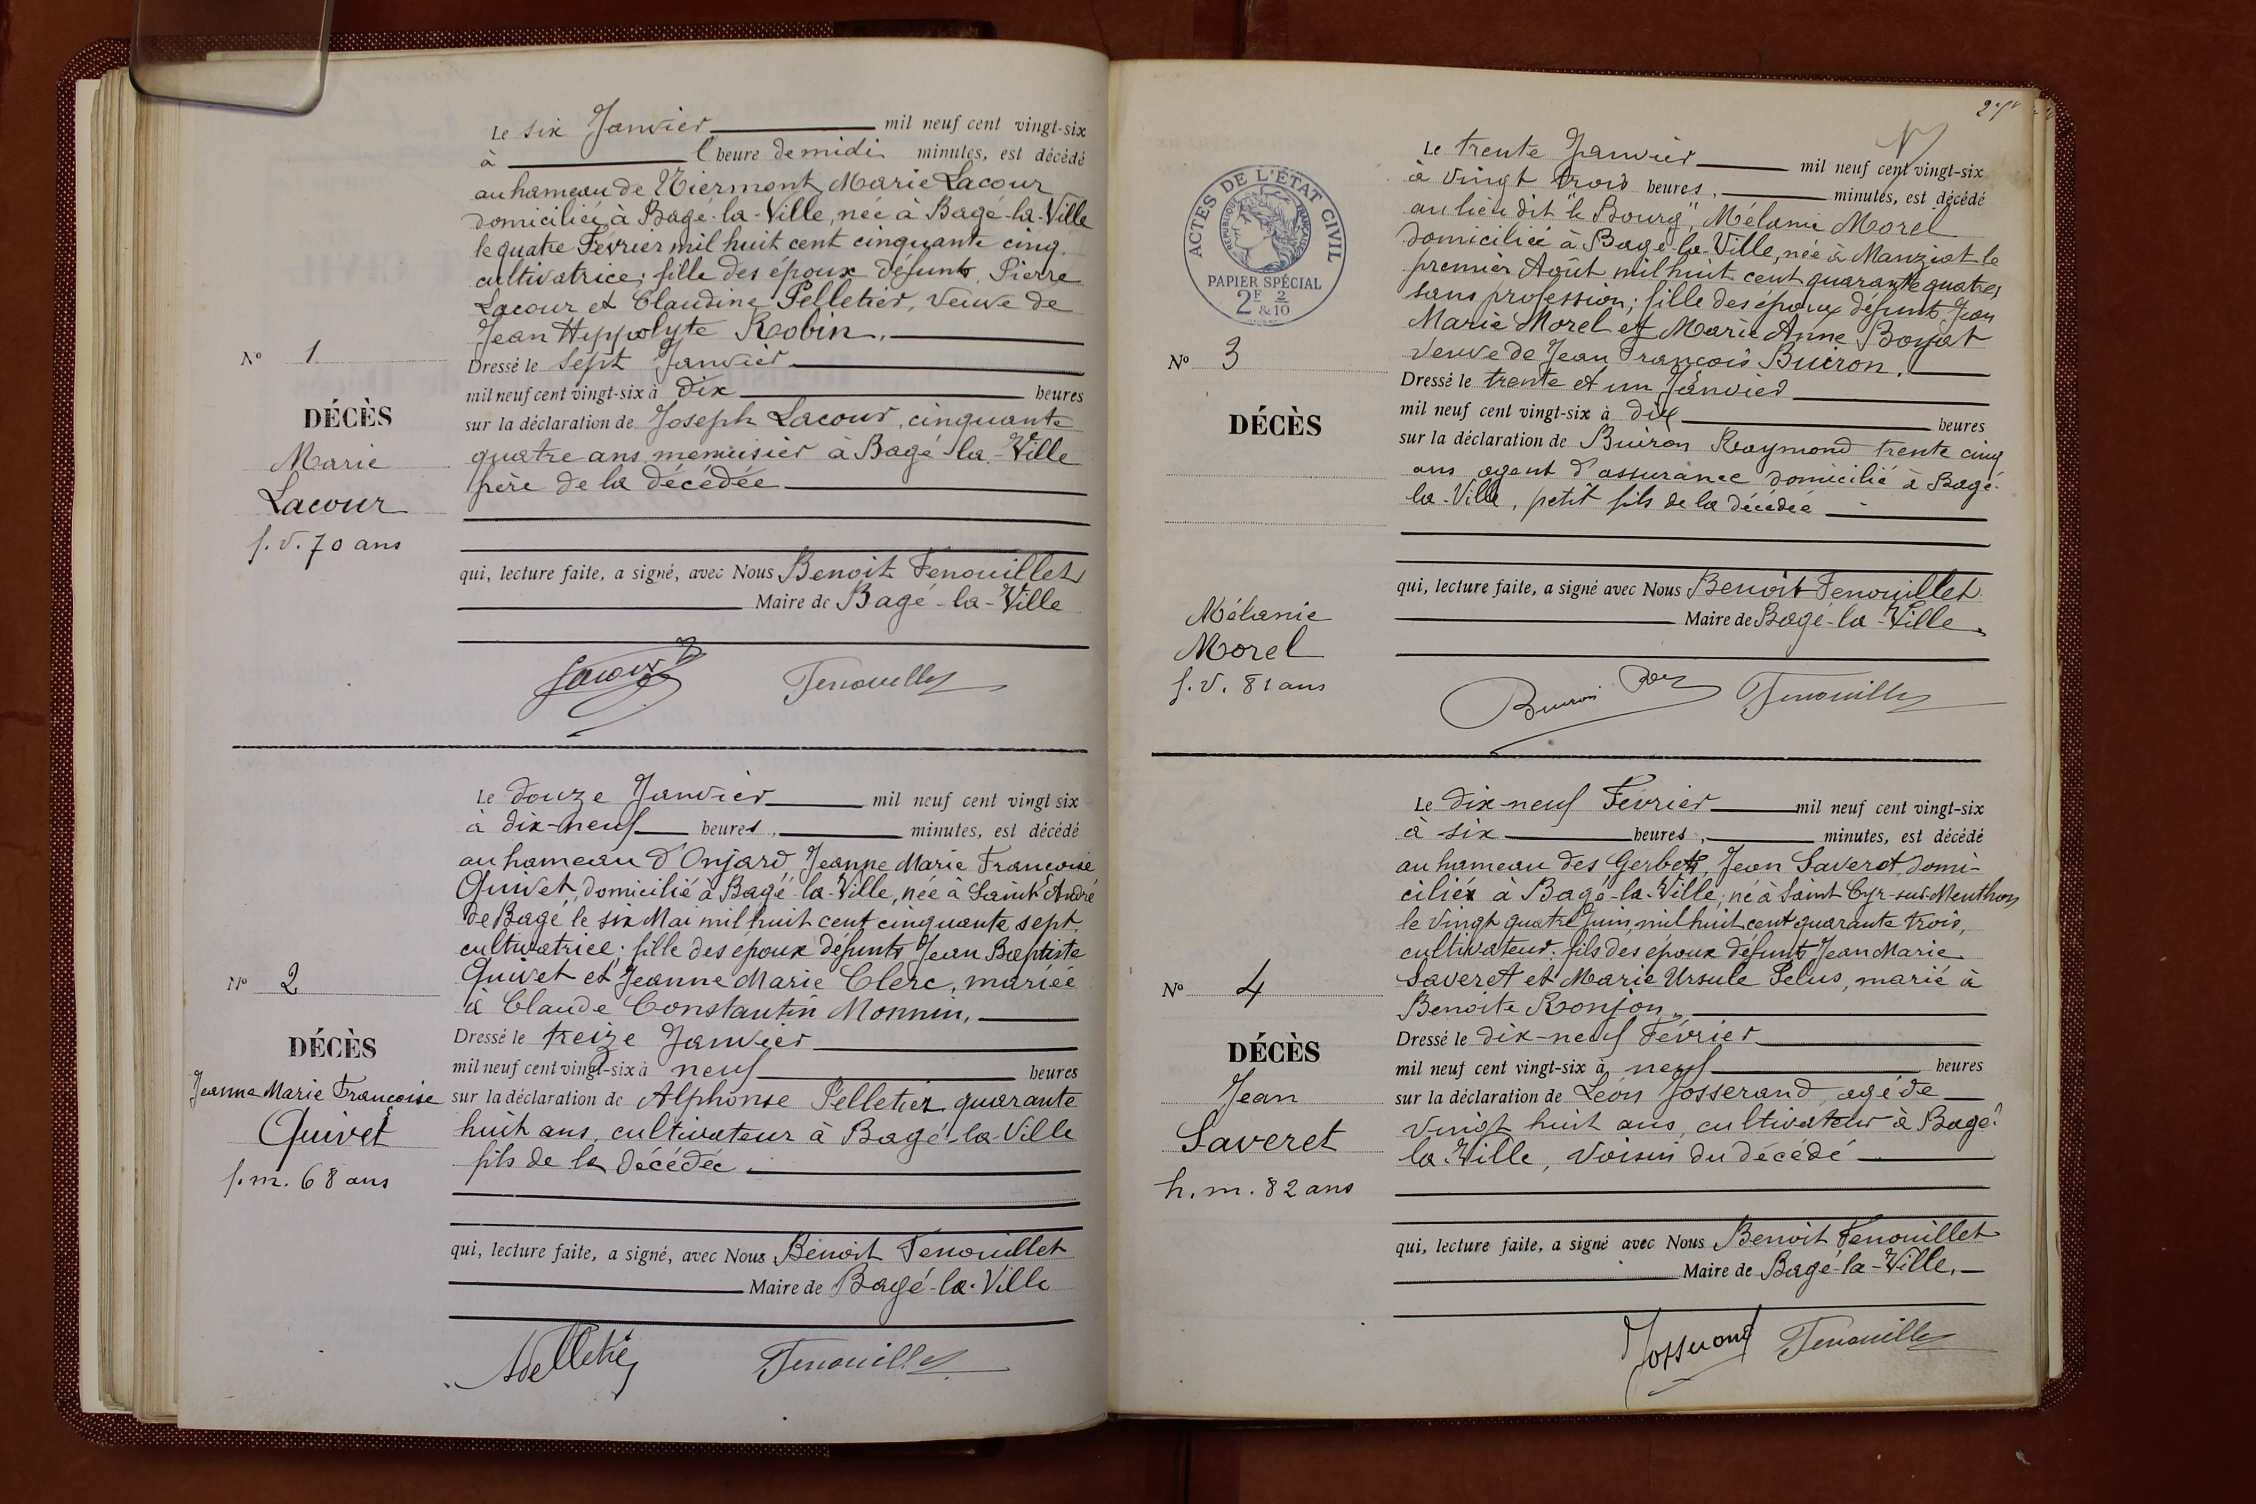 Le six Janvier mil neuf cent vingt-six
à l'heure de midi minutes, est décédé
au hameau de Niermont, Marie Lacour
domiciliée à Bagé-la-Ville, née à Bagé-la-Ville
le quatre Février mil huit cent cinquante cinq
cultivatrice; fille des époux défunts Pierre
Lacour et Claudine Pelletier, veuve de
Jean Hyppolyte Robin.
Dressé le sept Janvier
mil neuf cent vingt-six à dix heures
sur la déclaration de Joseph Lacour, cinquante
quatre ans menuisier à Bagé-la-Ville
père de la décédée
qui, lecture faite, a signé, avec Nous Benoit Fenouillet
Maire de Bagé-la-Ville
Lacour Fenouillet
N° 1
DÉCÈS
Marie
Lacour
f. v. 70 ans
Le douze Janvier mil neuf cent vingt-six
à dix-neuf heures, minutes, est décédé
au hameau d'Onjard, Jeanne Marie Françoise
Quivet, domicilié à Bagé-la-Ville, née à Saint André
de Bagé le six Mai mil huit cent cinquante sept,
cultivatrice; fille des époux défunts Jean Baptiste
Quivet et Jeanne Marie Clerc, mariée
à Claude Constantin Monnin.
Dressé le treize Janvier
mil neuf cent vingt-six à neuf heures
sur la déclaration de Alphonse Pelletier quarante
huit ans, cultivateur à Bagé-la-Ville
fils de la décédée.
qui, lecture faite, a signé, avec Nous Benoit Fenouillet
Maire de Bagé-la-Ville
Pelletier Fenouillet
N° 2
DÉCÈS
Jeanne Marie Françoise
Quivet
f. m. 68 ans
ACTES DE L'ÉTAT CIVIL
RÉPUBLIQUE FRANÇAISE
PAPIER SPÉCIAL
2F & 2/10
Le trente Janvier mil neuf cent vingt-six
à vingt trois heures, minutes, est décédé
au lieu dit "le Bourg", Mélanie Morel
domiciliée à Bagé-la-Ville, née à Manziat le
premier Août mil huit cent quarante quatre,
sans profession; fille des époux défunts Jean
Marie Morel et Marie Anne Boyat
veuve de Jean François Buiron.
Dressé le trente et un Janvier
mil neuf cent vingt-six à dix heures
sur la déclaration de Buiron Raymond trente cinq
ans agent d'assurance domicilié à Bagé-
la-Ville, petit fils de la décédée
qui, lecture faite, a signé avec Nous Benoit Fenouillet
Maire de Bagé-la-Ville
Buiron Fenouillet
N° 3
DÉCÈS
Mélanie
Morel
f. v. 81 ans
Le dix-neuf Février mil neuf cent vingt-six
à six heures, minutes, est décédé
au hameau des Gerbets, Jean Saveret, domi-
cilié à Bagé-la-Ville; né à Saint Cyr-sur-Menthon
le vingt quatre Juin, mil huit cent quarante trois,
cultivateur; fils des époux défunts Jean Marie
Saveret et Marie Ursule Pelus, marié à
Benoite Ronjon.
Dressé le dix-neuf Février
mil neuf cent vingt-six à neuf heures
sur la déclaration de Léon Josserand, agé de
vingt huit ans, cultivateur à Bagé-
la-Ville, voisin du décédé
qui, lecture faite, a signé avec Nous Benoit Fenouillet
Maire de Bagé-la-Ville.
Josserand Fenouillet
N° 4
DÉCÈS
Jean
Saveret
h. m. 82 ans